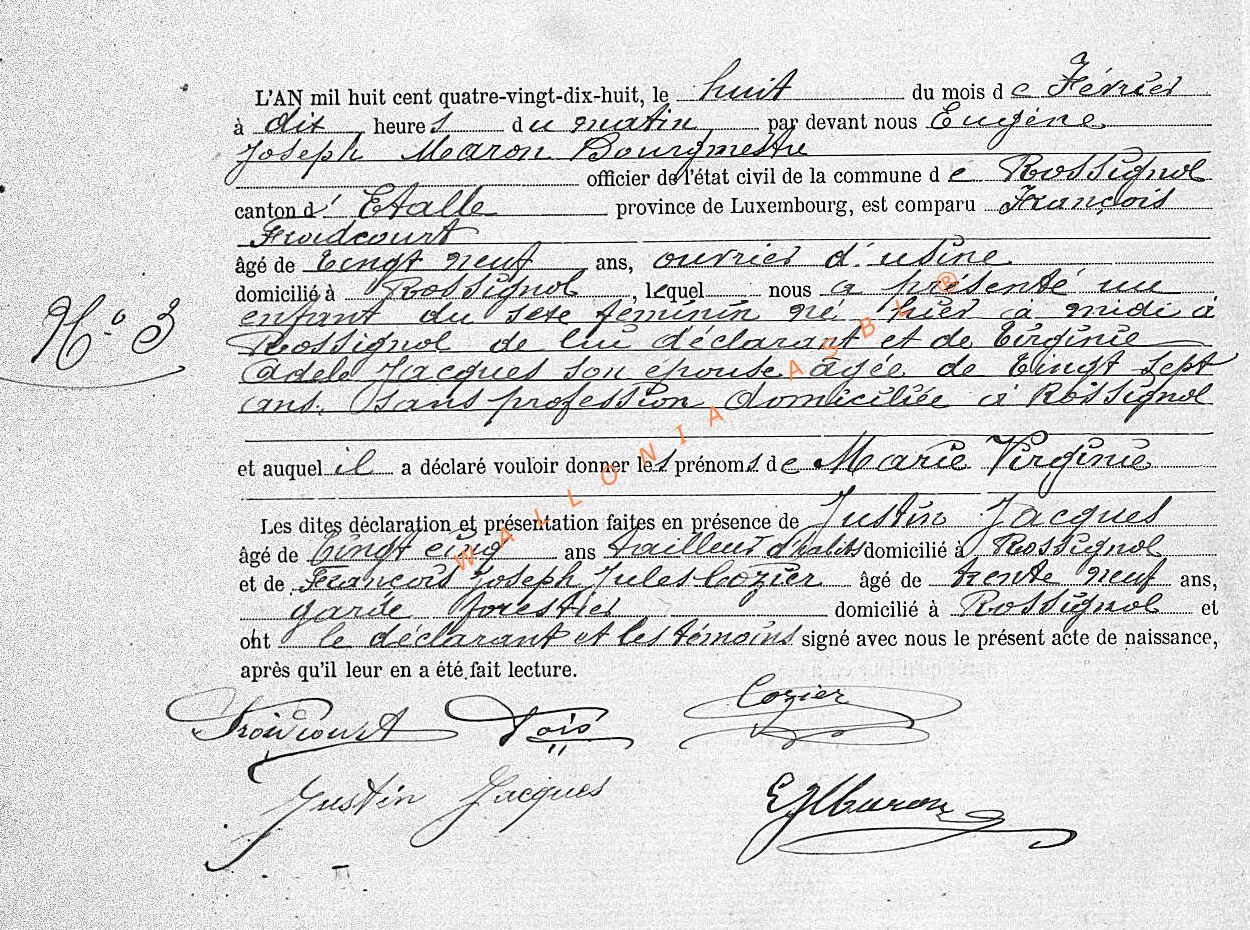 L'AN mil huit cent quatre-vingt-dix-huit, le huit du mois de Février
à dix heures du matin, par devant nous Eugène
Joseph Maron Bourgmestre
officier de l'état civil de la commune de Rossignol
canton d' Etalle province de Luxembourg, est comparu François
Froidcourt
âgé de vingt neuf ans, ouvrier d'usine
domicilié à Rossignol, lequel nous a présenté un
enfant du sexe féminin né hier à midi à
Rossignol de lui déclarant et de Virginie
Adèle Jacques son épouse agée de vingt sept
ans, sans profession domiciliée à Rossignol
N.º 3
et auquel il a déclaré vouloir donner les prénoms de Marie Virginie
Les dites déclaration et présentation faites en présence de Justin Jacques
âgé de vingt cinq ans tailleur d'habits domicilié à Rossignol
et de François Joseph Jules Cozier âgé de trente neuf ans,
garde forestier domicilié à Rossignol et
ont le déclarant et les témoins signé avec nous le présent acte de naissance,
après qu'il leur en a été fait lecture.
Froidcourt Fçois Cozier
Justin Jacques EJMaron
WALLONIA ASBL ®